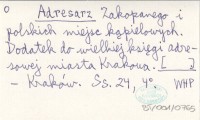 0
Adresarz Zakopanego i
polskich miejsc kąpielowych.
Dodatek do wielkiej księgi adre-
sowej miasta Krakowa. [ ]
– Kraków. Ss. 24, 4°. WHP